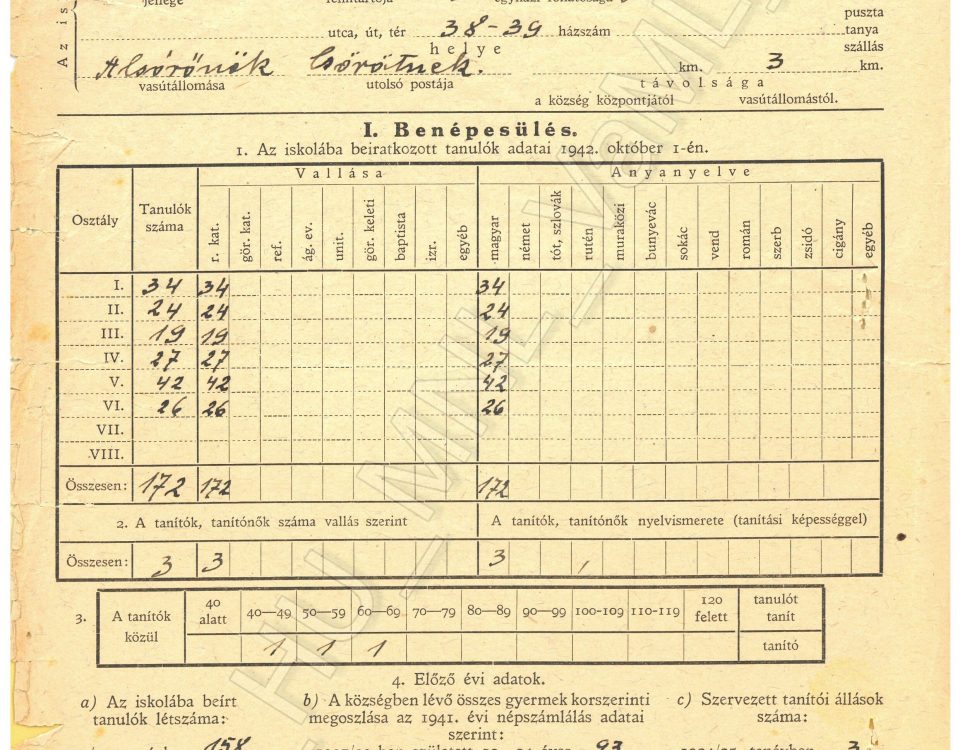 jellege fenntartója egyházi főhatósága
Az is
puszta
utca, út, tér 38-39 házszám tanya
helye szállás
Alsórönök Csörötnek. km. 3 km.
vasútállomása utolsó postája távolsága
a község központjától vasútállomástól.
I. Benépesülés.
1. Az iskolába beiratkozott tanulók adatai 1942. október 1-én.
Osztály Tanulók száma Vallása Anyanyelve
r. kat. gör. kat. ref. ág. ev. unit. gör. keleti baptista izr. egyéb magyar német tót, szlovák rutén muraközi bunyevác sokác vend román szerb zsidó cigány egyéb
I. 34 34 34
II. 24 24 24
III. 19 19 19
IV. 27 27 27
V. 42 42 42
VI. 26 26 26
VII.
VIII.
Összesen: 172 172 172
2. A tanítók, tanítónők száma vallás szerint A tanítók, tanítónők nyelvismerete (tanítási képességgel)
Összesen: 3 3 3
3. A tanítók közül 40 alatt 40—49 50—59 60—69 70—79 80—89 90—99 100-109 110-119 120 felett tanulót tanít
1 1 1 tanító
4. Előző évi adatok.
a) Az iskolába beírt b) A községben lévő összes gyermek korszerinti c) Szervezett tanítói állások
tanulók létszáma: megoszlása az 1941. évi népszámlálás adatai száma:
szerint:
158 93 3
HU_MNL_VaML